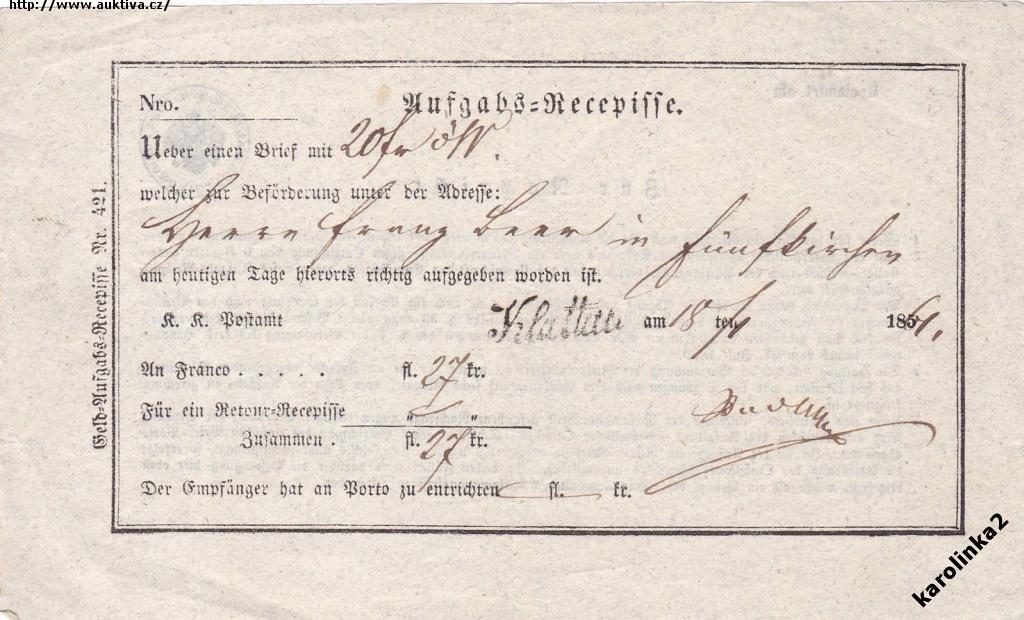 http://www.auktiva.cz/
Nro.
Aufgabs-Recepisse.
Ueber einen Brief mit 20 fr öW.
welcher zur Beförderung unter der Adresse:
Herrn Franz Beer in Fünfkirchen
am heutigen Tage hierorts richtig aufgegeben worden ist.
K. K. Postamt Klattau am 18 ten 185
An Franco . . . . fl. 27 kr.
Für ein Retour-Recepisse " — "
Zusammen . fl. 27 kr.
Der Empfänger hat an Porto zu entrichten — fl. — kr.
Geld-Aufgabs-Recepisse Nr. 421.
karolinka2